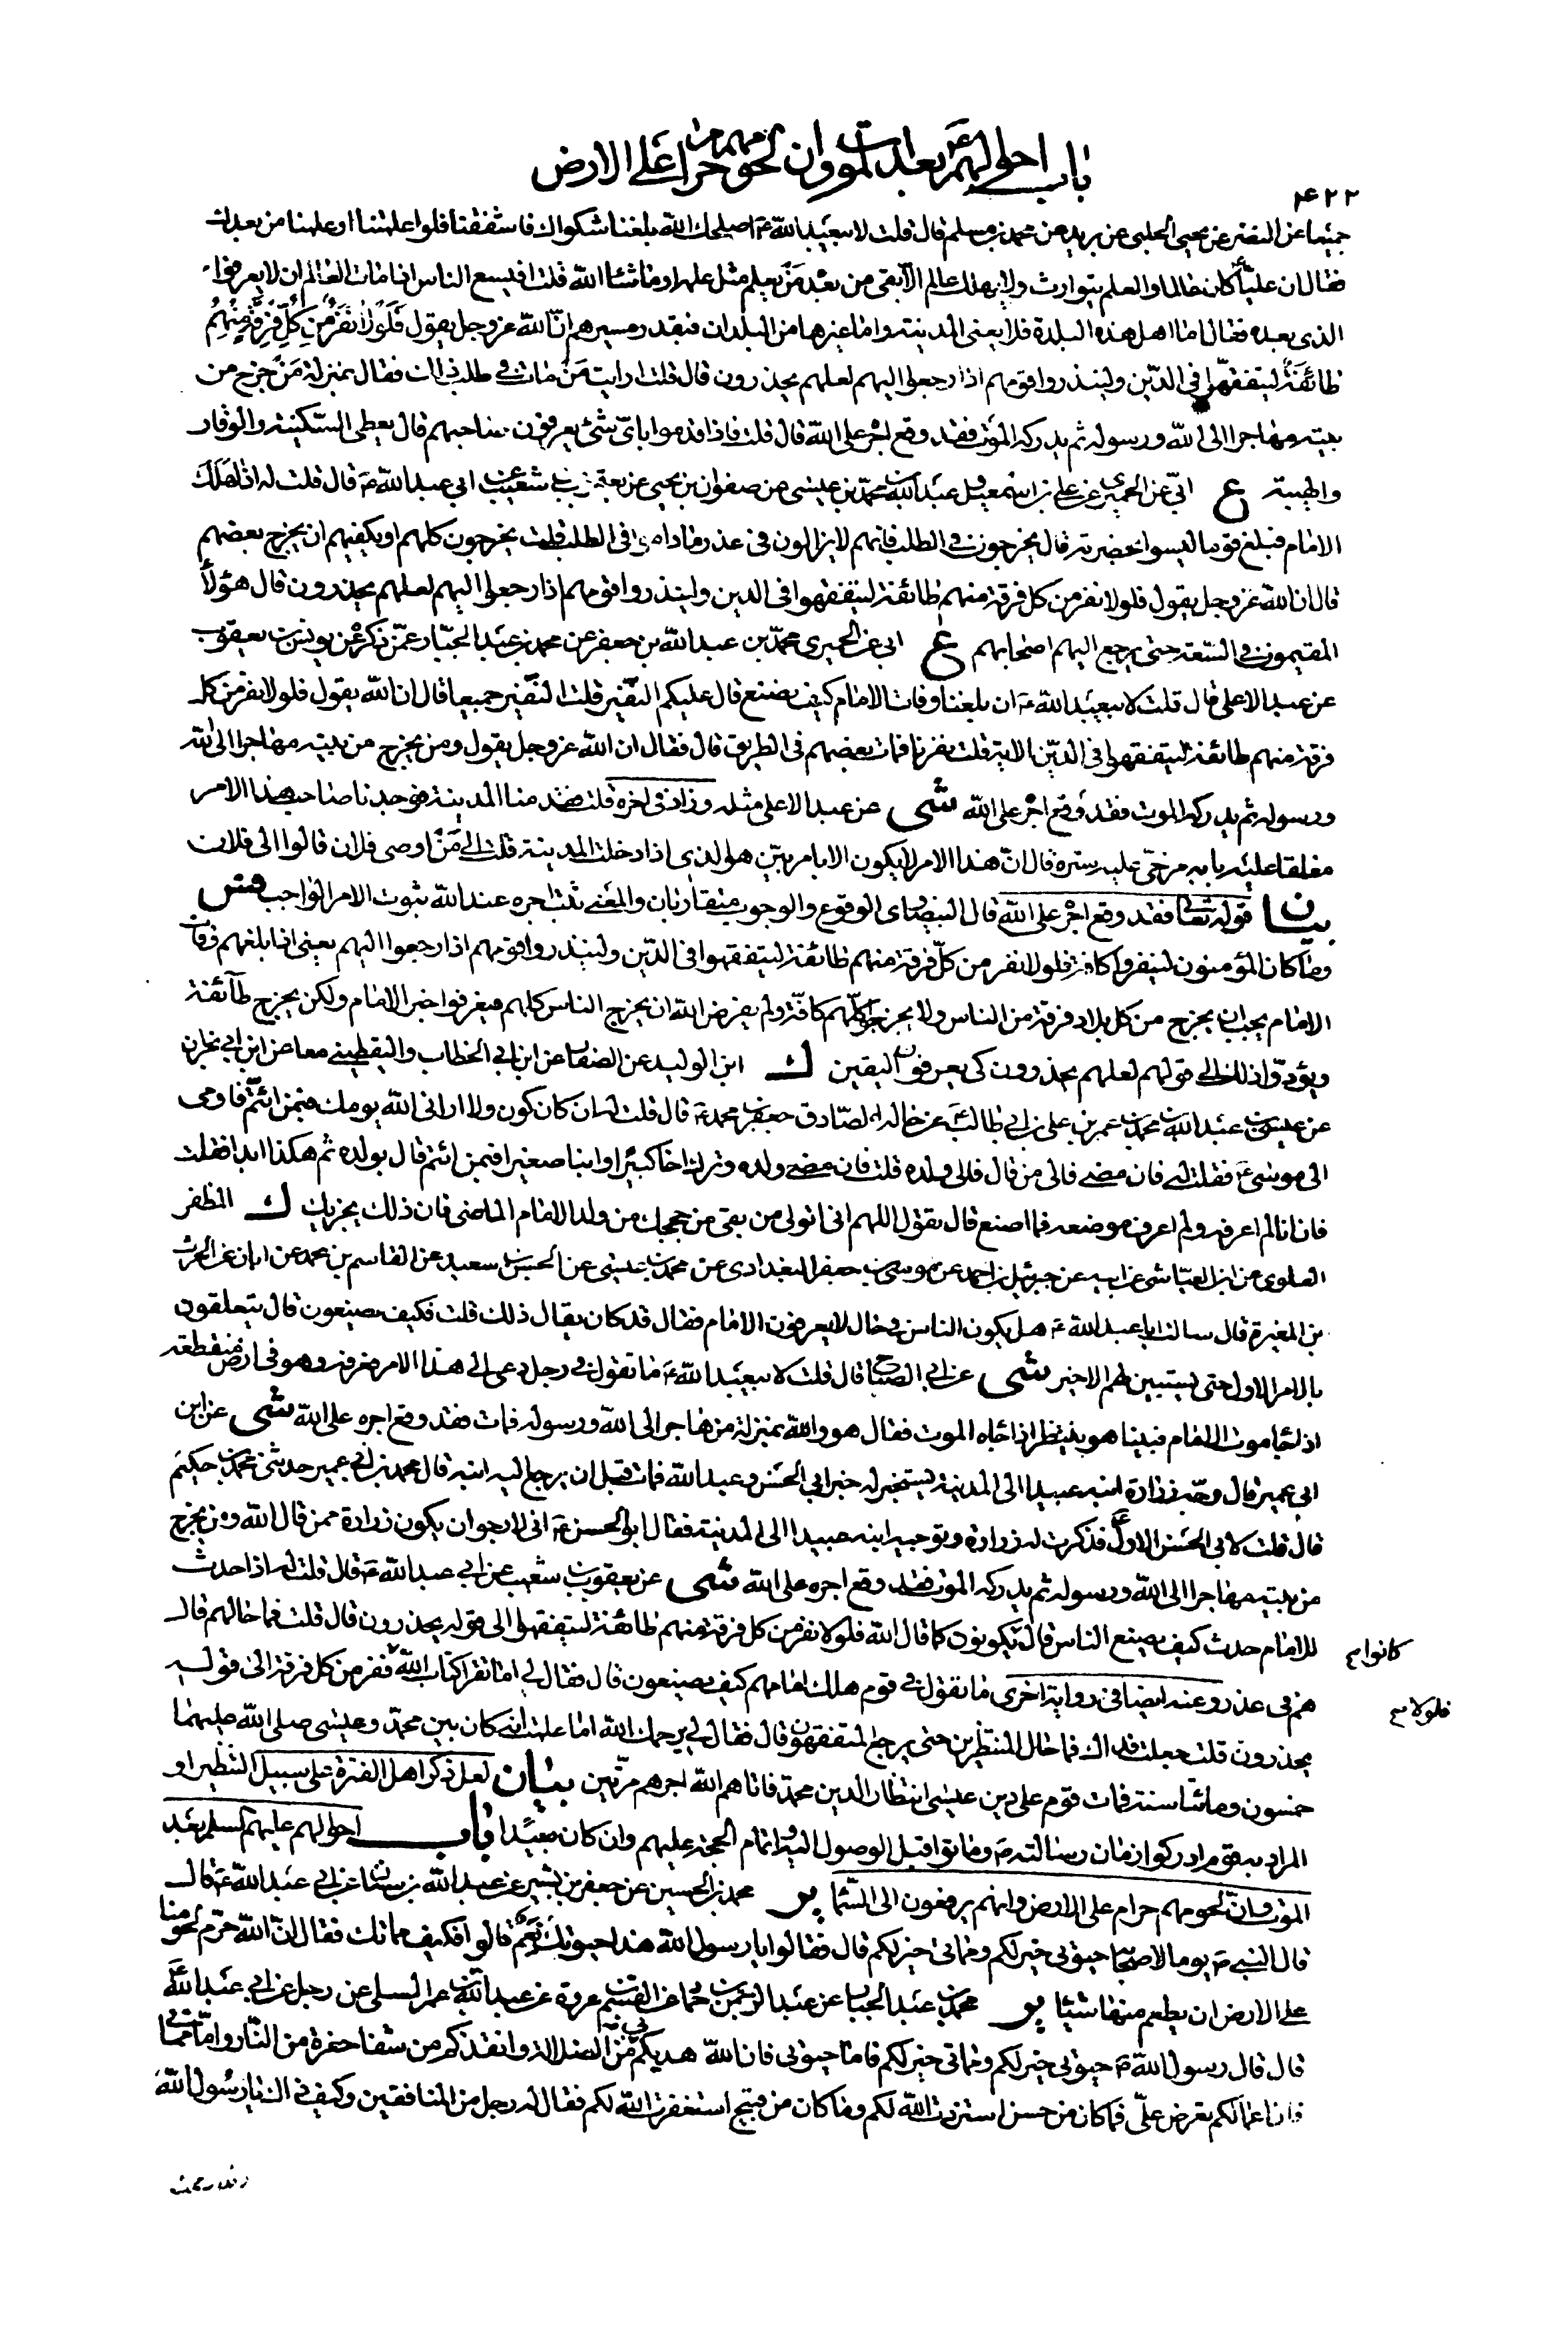 باب احوالهم عَ بعد الموت وان لحومهم حرام على الارض
۴۲۲
جميعا عن النضر عن يحيى الحلبي عن بريد عن محمد بن مسلم قال قلت لابيعبد الله عَ اصلحك الله بلغنا شكواك فاشفقنا فلو اعلمتنا او علمنا من بعدك
فقال ان عليّا عَ كان عالما والعلم يتوارث ولا يهلك عالم الا بقى من بعده مَن يعلم مثل علمه او ما شاء الله قلت افيسع الناس اذا مات العالم ان لا يعرفوا
الذى بعده فقال اما اهل هذه البلدة فلا يعنى المدينة واما غيرها من البلدان فبقدر مسيرهم انّ الله عز وجل يقول فَلَوْلا نَفَرَ مِنْ كُلِّ فِرْقَةٍ مِنْهُمْ
طائِفَةٌ ليتفقهّوا فى الدّين ولينذروا قومهم اذا رجعوا اليهم لعلهم يحذرون قال قلت ارايت مَن مات في طلب ذلك فقال بمنزلة مَن خرج من
بيته مهاجرا الى الله ورسوله ثم يدركه الموت فقد وقع اجره على الله قال قلت فاذا قدموا باىّ شئ يعرفون صاحبهم قال يعطى السّكينة والوقار
والهيبة ع ابي عن الحميري عن علي بن اسمعيل وعبد الله بن محمّد بن عيسى عن صفوان بن يحيى عن يعقوب بن شعيب عن ابي عبد الله عَ قال قلت له اذا هلك
الامام فبلغ قوما ليسوا بحضرته قال يخرجون في الطلب فانهم لا يزالون فى عذر ماداموا فى الطلب قلت يخرجون كلهم او يكفيهم ان يخرج بعضهم
قال ان الله عز وجل يقول فلولا نفر من كل فرقة منهم طائفة ليتفقهوا فى الدين ولينذروا قومهم اذا رجعوا اليهم لعلهم يحذرون قال هؤلاء
المقيمون في السّعة حتى يرجع اليهم اصحابهم ع ابي عن الحميري محمّد بن عبد الله بن جعفر عن محمد بن عبد الجبّار عمّن ذكره عن يونس بن يعقوب
عن عبد الاعلى قال قلت لابيعبد الله عَ ان بلغنا وفات الامام كيف نصنع قال عليكم النّفير قلت النفير جميعا قال ان الله يقول فلولا نفر من كل
فرقة منهم طائفة ليتفقهوا فى الدّين الاية قلت نفرنا فمات بعضهم فى الطريق قال فقال ان الله عز وجل يقول ومن يخرج من بيته مهاجرا الى الله
ورسوله ثم يدركه الموت فقد وقع اجره على الله شى عن عبد الاعلى مثله وزاد فى اخره قلت فقدمنا المدينة فوجدنا صاحب هذا الامر
مغلقا عليه بابه مرخى عليه ستره قال انّ هذا الامر لا يكون الا بامر بيّن هو الذى اذا دخلت المدينة قلت الى مَن اوصى فلان قالوا الى فلان
بيان قوله تعالى فقد وقع اجره على الله قال البيضاوى الوقوع والوجوب متقاربان والمعنى ثبت اجره عند الله ثبوت الامر الواجب فس
وما كان المؤمنون لينفروا كافة فلولا نفر من كلّ فرقة منهم طائفة ليتفقهوا فى الدّين ولينذروا قومهم اذا رجعوا اليهم يعنى اذا بلغهم وفات
الامام يجب ان يخرج من كل بلاد فرقة من الناس ولا يخرجوا كلّهم كافّة ولم يفرض الله ان يخرج الناس كلهم فيعرفوا خبر الامام ولكن يخرج طآئفة
ويؤدّوا ذلك الى قومهم لعلهم يحذرون كى يعرفون اليقين ك ابن الوليد عن الصفار عن ابن ابي الخطاب واليقطيني معا عن ابن ابي نجران
عن عيسى بن عبد الله بن محمد بن عمر بن علي بن ابي طالب عَ عن خاله الصّادق جعفر بن محمد عَ قال قلت له ان كان كون ولا ارانى الله يومك فبمن ائتمّ فاومى
الى موسى عَ فقلت له فان مضى فالى من قال فالى ولده قلت فان مضى ولده وترك اخا كبيرا وابنا صغيرا فبمن ائتم قال بولده ثم هكذا ابدا فقلت
فان انا لم اعرفه ولم اعرف موضعه فما اصنع قال تقول اللهم انى اتولى من بقى من حججك من ولد الامام الماضى فان ذلك يجزيك ك المظفر
العلوي عن ابن العيّاشى عن ابيه عن جبرئيل بن احمد عن موسى بن جعفر البغدادى عن محمد بن عيسى عن الحسين بن سعيد عن القاسم بن محمد عن ابان عن الحرث
بن المغيرة قال سالت ابا عبد الله عَ هل يكون الناس في حال لا يعرفون الامام فقال قد كان يقال ذلك قلت فكيف يصنعون قال يتعلقون
بالامر الاول حتى يستبين لهم الاخير شى عن ابي الصباح قال قلت لابيعبد الله عَ ما تقول في رجل دعى الى هذا الامر فعرفه وهو فى ارض منقطعة
اذ جاء موت الامام فبينا هو ينتظر اذ جاءه الموت فقال هو والله بمنزلة من هاجر الى الله ورسوله فمات فقد وقع اجره على الله شى عن ابن
ابي عمير قال وجّه زرارة ابنه عبيدا الى المدينة يستخبر له خبر ابي الحسن وعبد الله فمات قبل ان يرجع اليه ابنه قال محمد بن ابي عمير حدثنى محمد بن حكيم
قال قلت لابي الحسن الاول عَ فذكرت له زرارة وتوجيه ابنه عبيدا الى المدينة فقال ابو الحسن عَ انى لارجو ان يكون زرارة ممن قال الله ومن يخرج
من بيته مهاجرا الى الله ورسوله ثم يدركه الموت فقد وقع اجره على الله شى عن يعقوب بن شعيب عن ابي عبد الله عَ قال قلت له اذا حدث
للامام حدث كيف يصنع الناس قال يكونون كما قال الله فلولا نفر من كل فرقة منهم طائفة ليتفقهوا الى قوله يحذرون قال قلت فما حالهم قال
كانوا م
هم فى عذر وعنه ايضا فى رواية اخرى ما تقول في قوم هلك امامهم كيف يصنعون قال فقال لي اما تقرا كتاب الله نفر من كل فرقة الى قوله
فلولا م
يحذرون قلت جعلت فداك فما حال المنتظرين حتى يرجع المتفقهون قال فقال لي يرحمك الله اما علمت انه كان بين محمّد وعيسى صلى الله عليهما
خمسون ومائتا سنة فمات قوم على دين عيسى انتظارا لدين محمّد فاتاهم الله اجرهم مرّتين بيان لعل ذكر اهل الفترة على سبيل التنظير او
المراد به قوم ادركوا زمان رسالته صَ وماتوا قبل الوصول اليه واتمام الحجة عليهم وان كان بعيدا باب احوالهم عليهم السلم بعد
الموت وانّ لحومهم حرام على الارض وانهم يرفعون الى السّماء ير محمد بن الحسين عن جعفر بن بشير عن عبد الله بن سنان عن ابي عبد الله عَ قال
قال النبي صَ يوما لاصحابه حيوتي خير لكم ومماتي خير لكم قال فقالوا يا رسول الله هذا حيوتك نعم قالوا فكيف مماتك فقال انّ الله حرّم لحومنا
على الارض ان يطعم منها شيئا ير محمد بن عبد الجبار عن عبد الرحمن بن حماد عن القاسم بن عروة عن عبد الله بن عمر المسلي عن رجل عن ابي عبد الله عَ
قال قال رسول الله صَ حيوتي خير لكم ومماتي خير لكم فاما حيوتي فان الله هديكم بي من الضلالة وانقذكم من شفا حفرة من النّار وامّا مماتي
فان اعمالكم تعرض علىّ فما كان من حسن استزدت الله لكم وما كان من قبيح استغفرت الله لكم فقال له رجل من المنافقين وكيف ذاك يا رسول الله